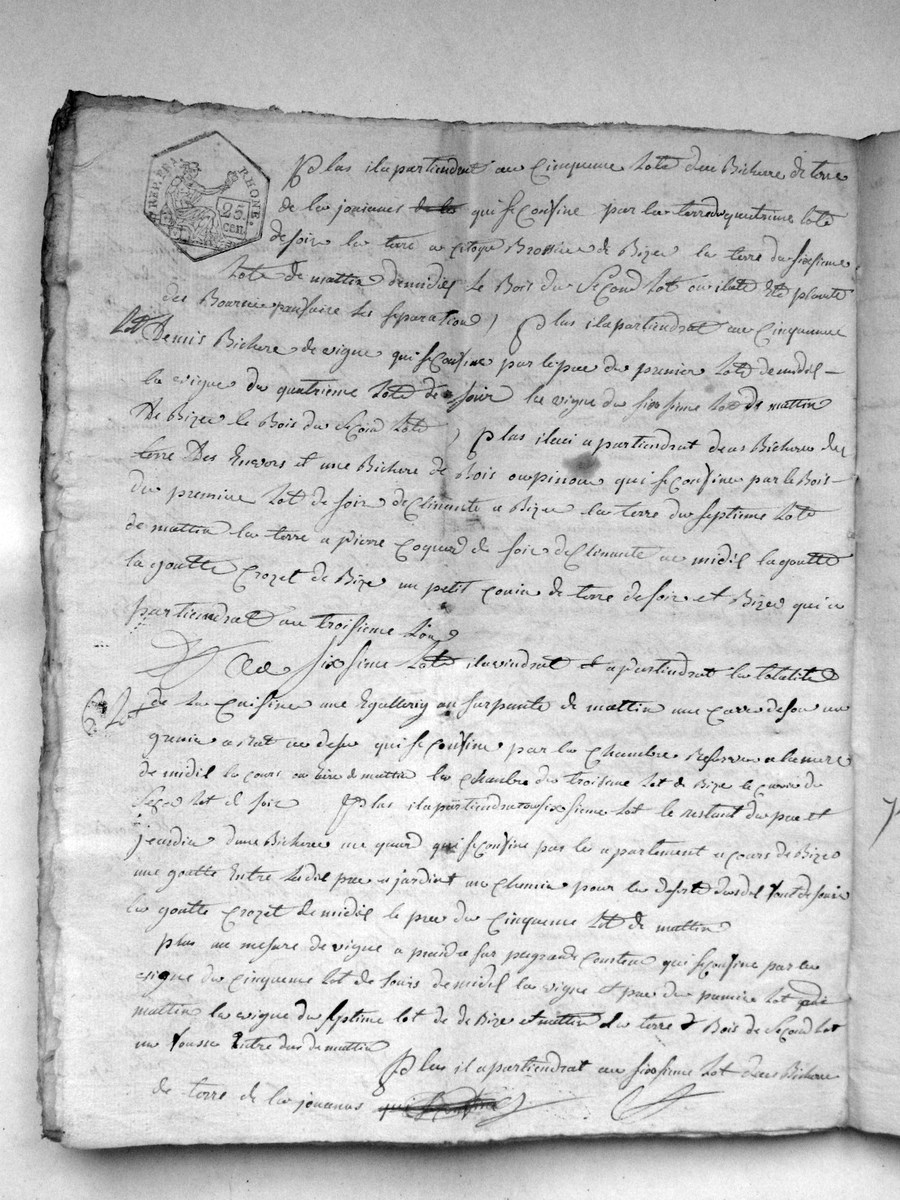 REP. FRA. RHONE.
25 cen.
Plus il apartiendrat au Cinqueme Lote deux Bichere de terre
de la joieunes de la qui se Confine par la terre du quatrieme lote
de soir la terre a Citoye Brossier de Bize la terre du sixsieme
Lote de mattin de midiel le Bois du Second Lot ou ilat Eté planté
des Bourne par faire les separation / Plus il apartiendrat au Cinqueme
Lot Demis Bichere de vigne qui se Confine par le pre du premier Lote de midiel
la vigne du quatrieme Lote de soir la vigne du sixsieme Lot de mattin
De Bize le Bois du Second Lote / Plus il aci apartiendrat deus Bichere de
terre Des Envers et une Bichere de Bois ou pinou qui se Confine par le Bois
du premier Lot de soir declinante a Bize la terre du septieme Lote
de mattin la terre a pierre Coquerd de soir declinante au midil la goutte
la goutte Crozet de Bize un petit Couin de terre de soir et Bize qui a
partiendrat au troisieme Lote
Au Sixsieme Lote il aviendrat et apartiendrat la totalité
6e Lot de la Cuisine une Egallerig au sarpante de mattin une Carre de son un
grenie a strat au desu qui se Confine par la Chambre Reserve a la mere
de midil la Cours ou Eire de mattin la Chambre du troisieme Lot de Bize le Cuvier du
Second Lot de soir Plus il apartiendrat au sixsieme Lot le restant du pre et
jeardin dune Bichere un quard qui se Confine par le apartement a Cours de Bize
une goutte Entre ledil pre a jardint un Chemin pour la deserte dudil font de soire
la goutte Crozet de midil le pre du Cinqueme Lot de mattin
plus un mesure de vigne a prendre sur plegrand Couteau qui se Confine par la
vigne du Cinqueme lot de soirs de midil la vigne et pre du premier Lot de
mattin la vigne du septieme lot de de Bize et mattin la terre et Bois de Second Lot
un fousse Entre deus de mattin
Plus il apartiendrat au sixsieme Lot deus Bichere
de terre de la jouanas qui se Confine